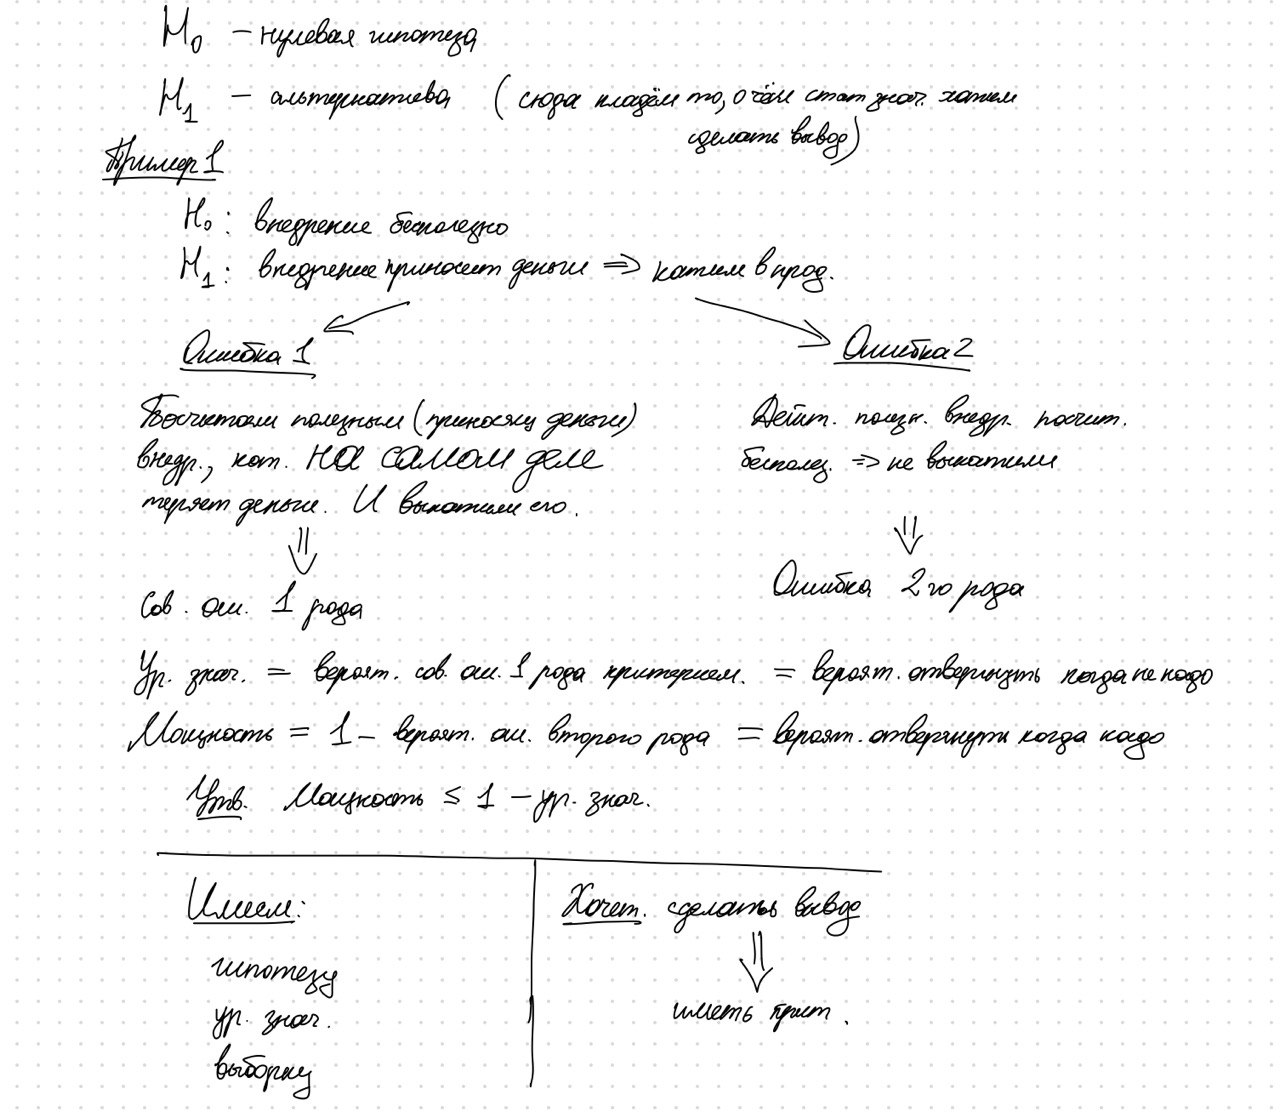 H₀ – нулевая гипотеза
H₁ – альтернатива (сюда кладём то, о чём стат знач. хотим
сделать вывод)
Пример 1
H₀: внедрение бесполезно
H₁: внедрение приносит деньги ⇒ катим в прод.
Ошибка 1
Ошибка 2
Посчитали полезным (приносящ деньги)
внедр., кот. НА САМОМ ДЕЛЕ
теряет деньги. И выкатили его.
Дейст. полезн. внедр. посчит.
бесполез. ⇒ не выкатили
⇓
⇓
Сов. ош. 1 рода
Ошибка 2го рода
Ур. знач. = вероят. сов. ош. 1 рода критерием. = вероят. отвергнуть когда не надо
Мощность = 1 – вероят. ош. второго рода = вероят. отвергнуть когда надо
Утв. Мощность ≤ 1 – ур. знач.
Имеем:
гипотезу
ур. знач.
выборку
Хочет. сделать вывод
⇓
иметь крит.